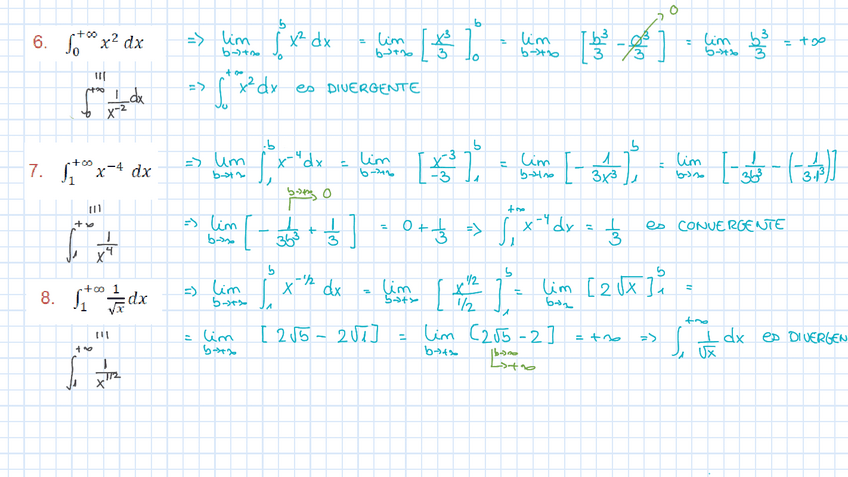 6. ∫₀^{+∞} x² dx => lim_{b→+∞} ∫₀^b x² dx = lim_{b→+∞} [x³/3]₀^b = lim_{b→+∞} [b³/3 - 0³/3] → 0 = lim_{b→+∞} b³/3 = +∞
||| ∫₀^{+∞} 1/x⁻² dx => ∫₀^{+∞} x² dx es DIVERGENTE
7. ∫₁^{+∞} x⁻⁴ dx => lim_{b→+∞} ∫₁^b x⁻⁴ dx = lim_{b→+∞} [x⁻³/-3]₁^b = lim_{b→+∞} [- 1/3x³]₁^b = lim_{b→∞} [- 1/3b³ - (- 1/3·1³)]
b→+∞ → 0
||| ∫₁^{+∞} 1/x⁴ => lim_{b→+∞} [- 1/3b³ + 1/3] = 0 + 1/3 => ∫₁^{+∞} x⁻⁴ dx = 1/3 es CONVERGENTE
8. ∫₁^{+∞} 1/√x dx => lim_{b→+∞} ∫₁^b x^{-1/2} dx = lim_{b→+∞} [x^{1/2}/1/2]₁^b = lim_{b→∞} [2√x]₁^b =
= lim_{b→+∞} [2√b - 2√1] = lim_{b→+∞} [2√b - 2] = +∞ => ∫₁^{+∞} 1/√x dx es DIVERGEN
b→∞ → +∞
||| ∫₁^{+∞} 1/x^{1/2}